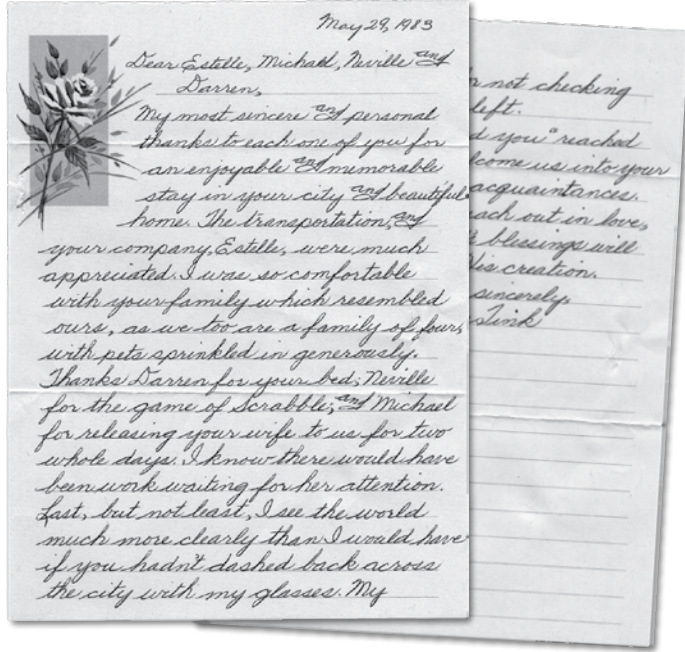 May 29, 1983
Dear Estelle, Michael, Neville and
Darren,
My most sincere and personal
thanks to each one of you for
an enjoyable and memorable
stay in your city and beautiful
home. The transportation, and
your company, Estelle, were much
appreciated. I was so comfortable
with your family which resembled
ours, as we too are a family of four,
with pets sprinkled in generously.
Thanks Darren for your bed; Neville
for the game of Scrabble; and Michael
for releasing your wife to us for two
whole days. I know there would have
been work waiting for her attention.
Last, but not least, I see the world
much more clearly than I would have
if you hadn't dashed back across
the city with my glasses. My
not checking
left.
you" reached
come us into your
acquaintances.
out in love,
blessings will
His creation.
sincerely,
Tink